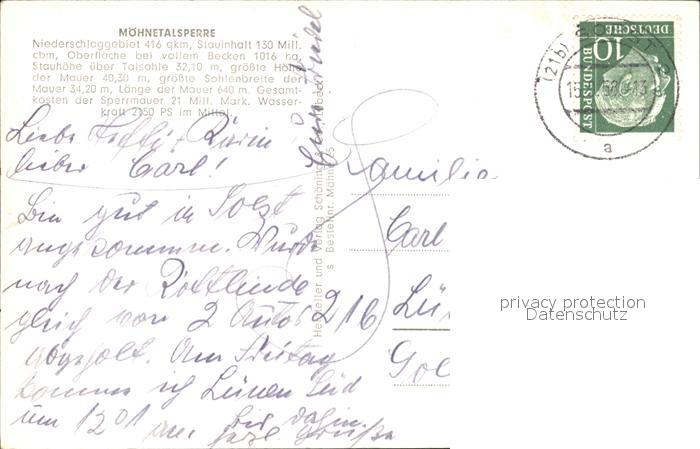 MÖHNETALSPERRE
Niederschlaggebiet 416 qkm, Stauinhalt 130 Mill.
cbm, Oberfläche bei vollem Becken 1016 ha,
Stauhöhe über Talsohle 32,10 m, größte Höhe
der Mauer 40,30 m, größte Sohlenbreite der
Mauer 34,20 m, Länge der Mauer 640 m. Gesamt-
kosten der Sperrmauer 21 Mill. Mark. Wasser-
kraft 2150 PS im Mittel
Liebe Karin
lieber Carl!
Bin gut in Soest
angekommen. Wurde
nach der
gleich von 2 Autos
abgeholt. Am Freitag
komme ich Lünen Süd
um 1201 an. Bis dahin
herzl. Grüße
Hersteller und Verlag Schöning &
Bestellnr. Möhne
Familie
Carl
216 Lü
DEUTSCHE
BUNDESPOST
10
(21b) SOEST
a
privacy protection
Datenschutz